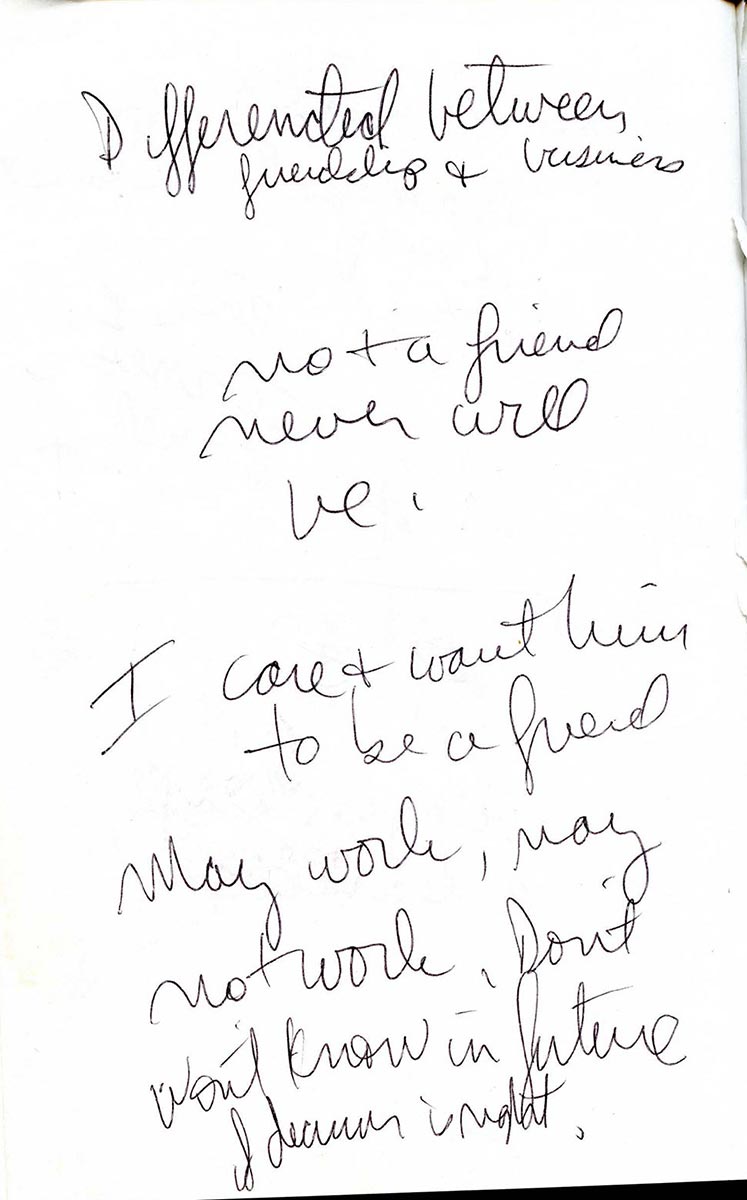 Differented between
friendship & business
not a friend
never will
be.
I care & want him
to be a friend
May work, may
not work. Don't
won't know in future
if decision is right.